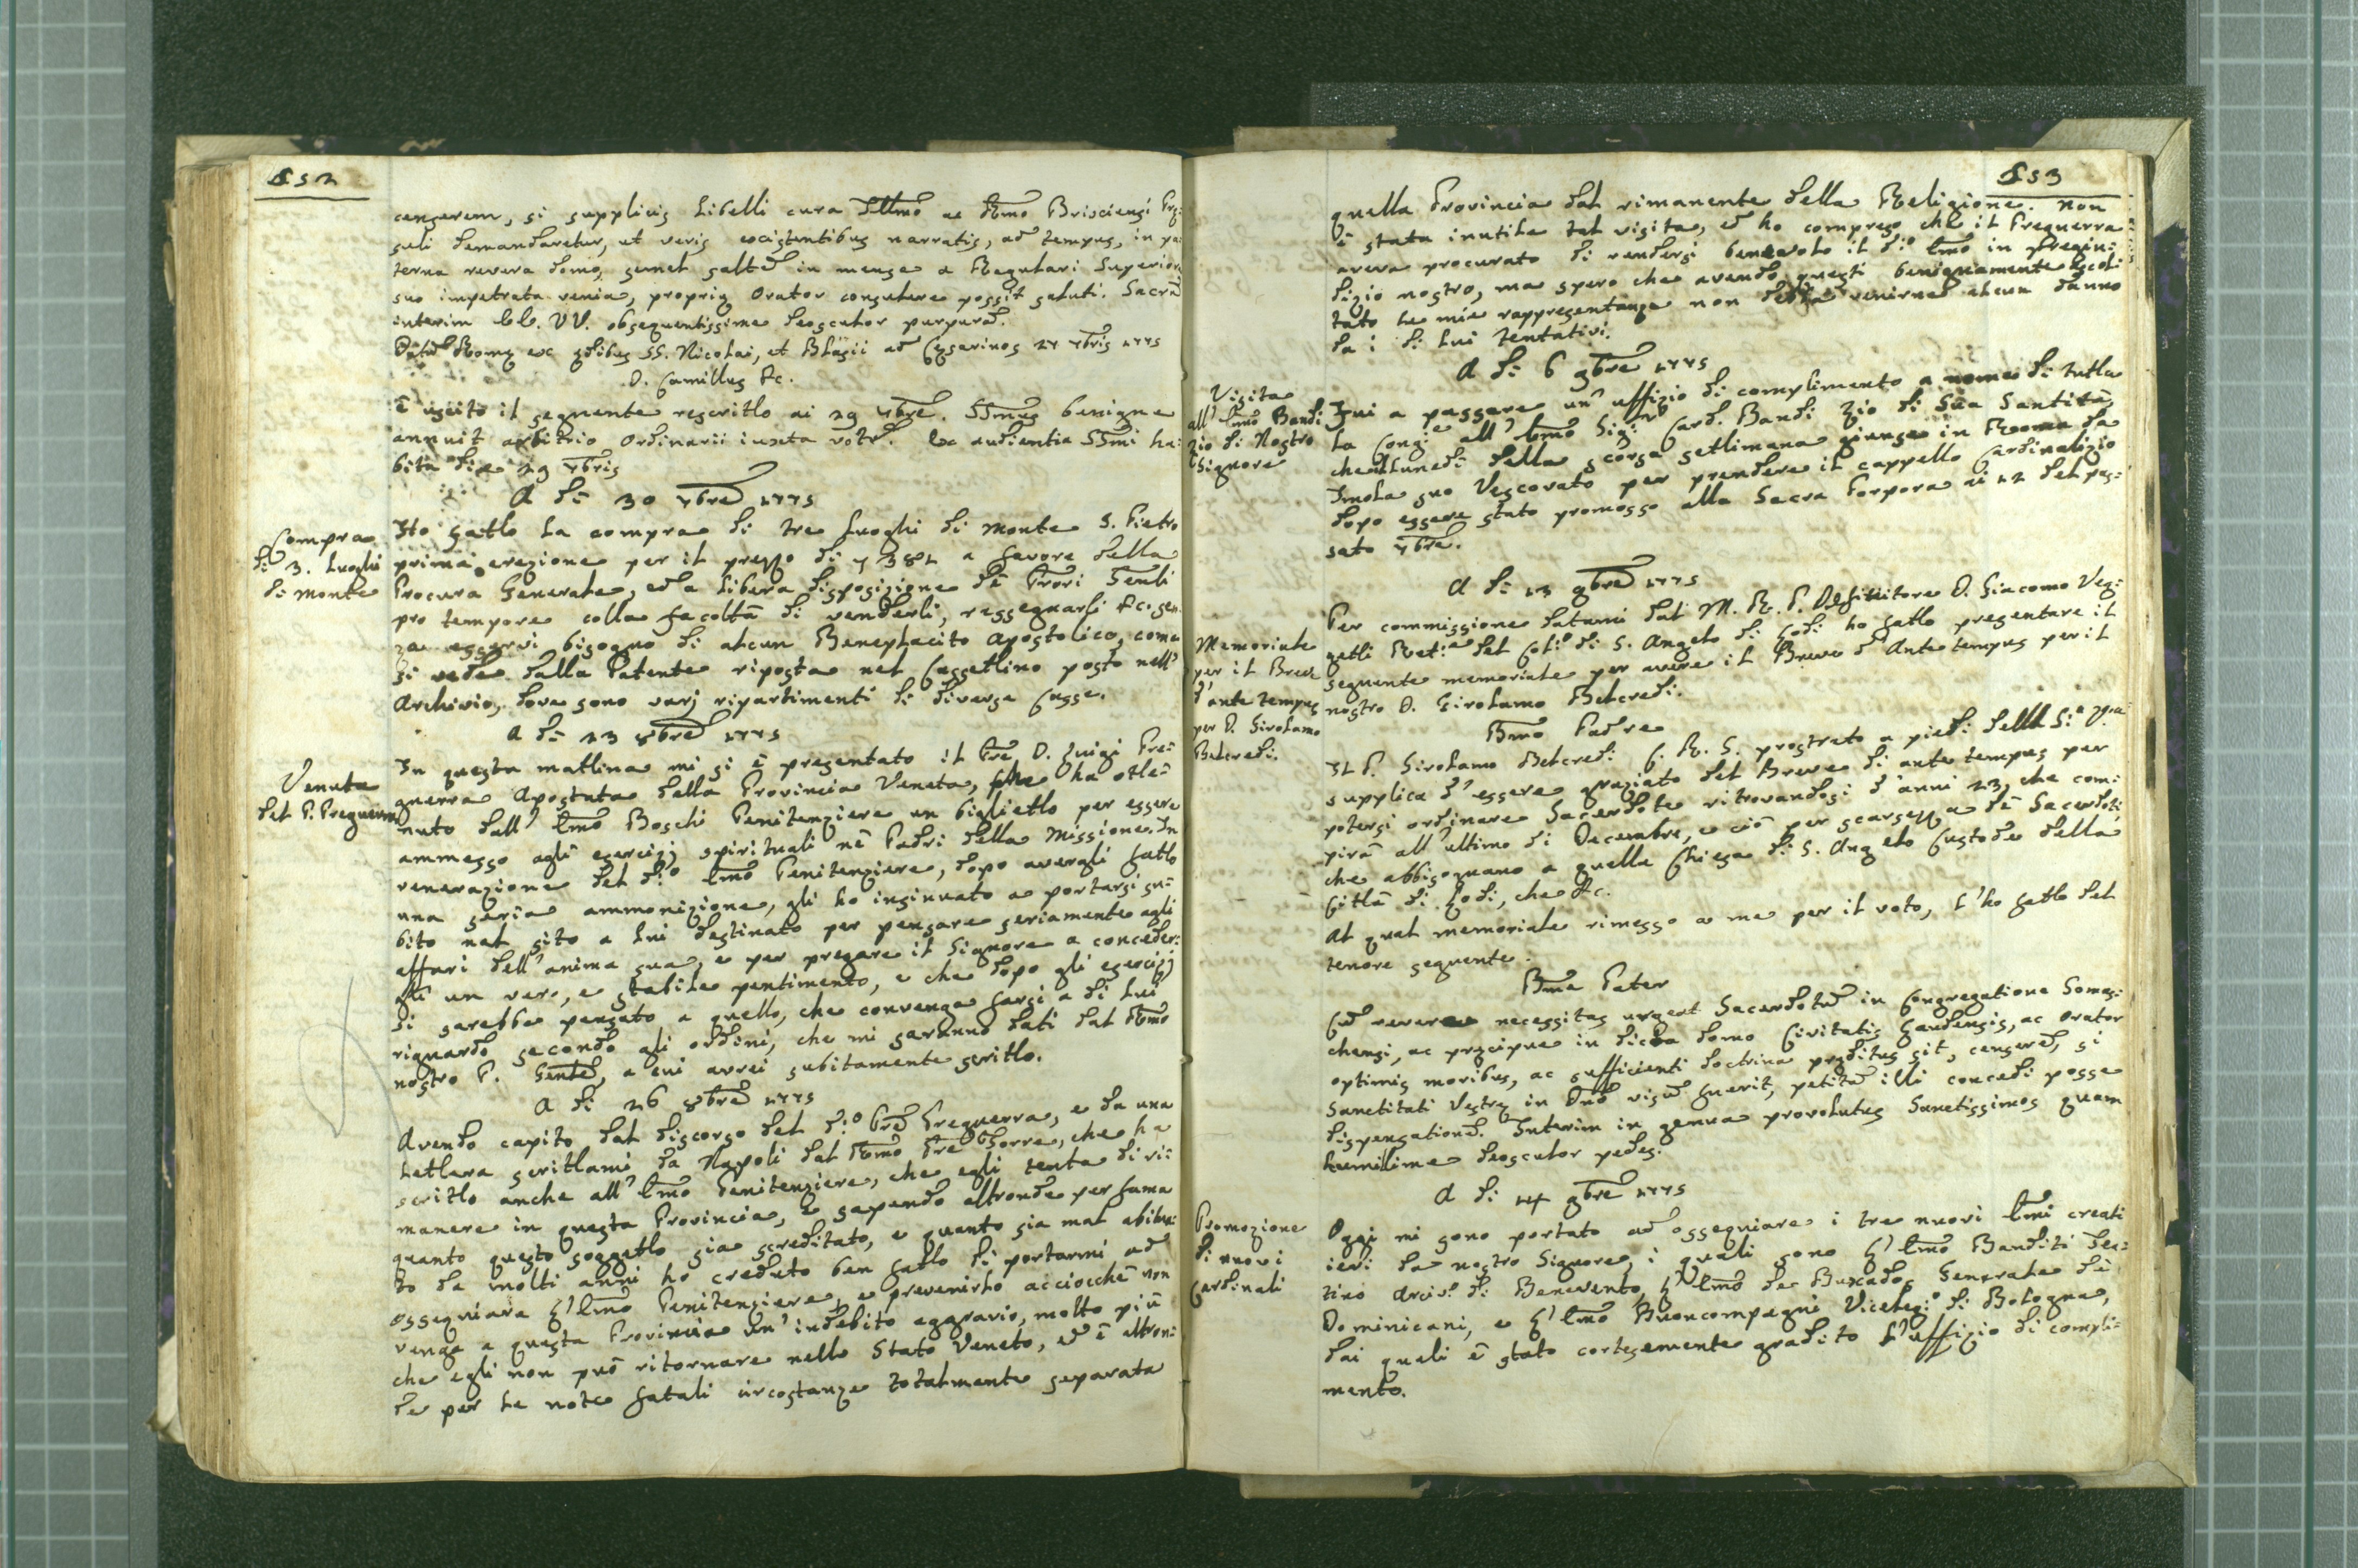 152
censerem, si supplicis Libelli cura Illmo ac Rmo Brisciensi Pre:
suli demandaretur, ut veris existentibus narratis, ad tempus, in pa:
terna revera domo, semel salte in mense a Regulari Superiore
suo impetrata venia, propriæ Orator consulere possit saluti. Sacra
interim EE. VV. obsequentissime deosculor purpura.
Datu Romæ ex ædibus SS. Nicolai, et Blasii ad Cæsarinos 27 7bris 1775
D. Camillus &c.
È uscito il seguente rescritto ai 29 7bre. SSmus benigne
annuit arbitrio Ordinarii iuxta votu. Ex audientia SSmi ha:
bita die 29 7bris
A dì 30 7bre 1775
Compra
di 3. Luoghi
di Monte
Ho fatto la compra di tre Luoghi di Monte S. Pietro
prima erezione per il prezzo di 381 a favore della
Procura Generale, ed a libera disposizione de' Prori Genli
pro tempore colla facoltà di venderli, rassegnarli &c. sen
za esservi bisogno di alcun Beneplacito Apostolico, come
si vede dalla Patente riposta nel Cassettino posto nell'
Archivio, dove sono varj ripartimenti di diverse Casse.
A dì 23 8bre 1775
Venuta
del P. Freguerra
In questa mattina mi si è presentato il Pre D. Luigi Fre:
guerra Apostata della Provincia Veneta, che ha otte:
nuto dall' Emo Boschi Penitenziere un biglietto per essere
ammesso agli esercizj spirituali ne' Padri della Missione. In
venerazione del do Emo Penitenziere, dopo avergli fatto
una seria ammonizione, gli ho insinuato a portarsi su:
bito nel sito a lui destinato per pensare seriamente agli
affari dell' anima sua, e per pregare il Signore a conceder:
gli un vero, e stabile pentimento, e che dopo gli esercizj
si sarebbe pensato a quello, che convenga farsi a di lui
riguardo secondo gli ordini, che mi saranno dati dal Rmo
nostro P. Genle, a cui avrei subitamente scritto.
A dì 26 8bre 1775
Avendo capito dal discorso del do Pre Freguerra, e da una
lettera scrittami da Napoli dal Rmo Pre Torre, che ha
scritto anche all' Emo Penitenziere, che egli tenta di ri:
manere in questa Provincia, e sapendo altronde per fama
quanto questo soggetto sia screditato, e quanto sia mal abitua:
to da molti anni ho creduto ben fatto di portarmi ad
ossequiare l' Emo Penitenziere, e prevenirlo acciocchè non
venga a questa Provincia un' indebito aggravio, molto più
che egli non può ritornare nello Stato Veneto, ed è altron:
de per le note fatali circostanze totalmente separata
153
quella Provincia dal rimanente della Religione. Non
è stata inutile tal visita, ed ho compreso che il Freguerra
aveva procurato di rendersi benevolo il do Emo in pregiu:
dizio nostro, ma spero che avendo questi benignamente ascol:
tato le mie rappresentanze non debba venirne alcun danno
da i di lui tentativi.
A dì 6 9bre 1775
Visita
all' Emo Bandi
zio di Nostro
Signore
Fui a passare un' uffizio di complimento a nome di tutta
la Congne all' Emo Sigr Card. Bandi Zio di Sua Santità,
che Lunedì della scorsa settimana giunse in Roma da
Imola suo Vescovato per prendere il cappello Cardinalizio
dopo essere stato promosso alla Sacra Porpora ai 12 del pas:
sato 7bre.
A dì 13 9bre 1775
Memoriale
per il Breve
d' ante tempus
per D. Girolamo
Belcredi.
Per commissione datami dal M. R. P. Definitore D. Giacomo Vez:
zelli del di S. Angelo di Lodi ho fatto presentare il
seguente memoriale per avere il Breve d' Ante tempus per il
nostro D. Girolamo Belcredi.
Bmo Padre
Il P. Girolamo Belcredi C. R. S. prostrato a piedi della Sà Vra
supplica d' essere graziato del Breve di ante tempus per
potersi ordinare Sacerdote ritrovandosi d' anni 23, che com:
pirà all' ultimo di Decembre, e ciò per scarsezza de' Sacerdoti,
che abbisognano a quella Chiesa di S. Angelo Custode della
Città di Lodi, che &c.
Al qual memoriale rimesso a me per il voto, l' ho fatto del
tenore seguente.
Bme Pater
Cu revera necessitas urgeat Sacerdotu in Congregatione Somas:
chensi, ac præcipue in dicta domo Civitatis Laudensis, ac Orator
optimis moribus, ac sufficienti doctrina præditus sit, censere, si
Sanctitati Vestræ in Dno visu fuerit, petita illi concedi posse
dispensatione. Interim in genua provolutus Sanctissimos quam
humillime deosculor pedes.
A dì 14 9bre 1775
Promozione
di nuovi
Cardinali
Oggi mi sono portato ad ossequiare i tre nuovi Emi creati
ieri da nostro Signore, i quali sono l' Emo Banditi Tea:
tino Arciv. di Benevento, l' Emo de Buxados Generale de'
Dominicani, e l' Emo Buoncompagni Viceleg.o di Bologna,
dai quali è stato cortesemente gradito l' uffizio di compli:
mento.